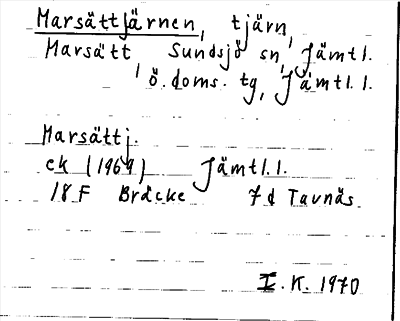 Marsättjärnen, tjärn,
Marsätt, Sundsjö sn, Jämtl.
ö. doms. tg, Jämtl. l.
Marsättj.
ek (1969) Jämtl. l.
18 F Bräcke 7 d Tavnäs
I. K. 1970